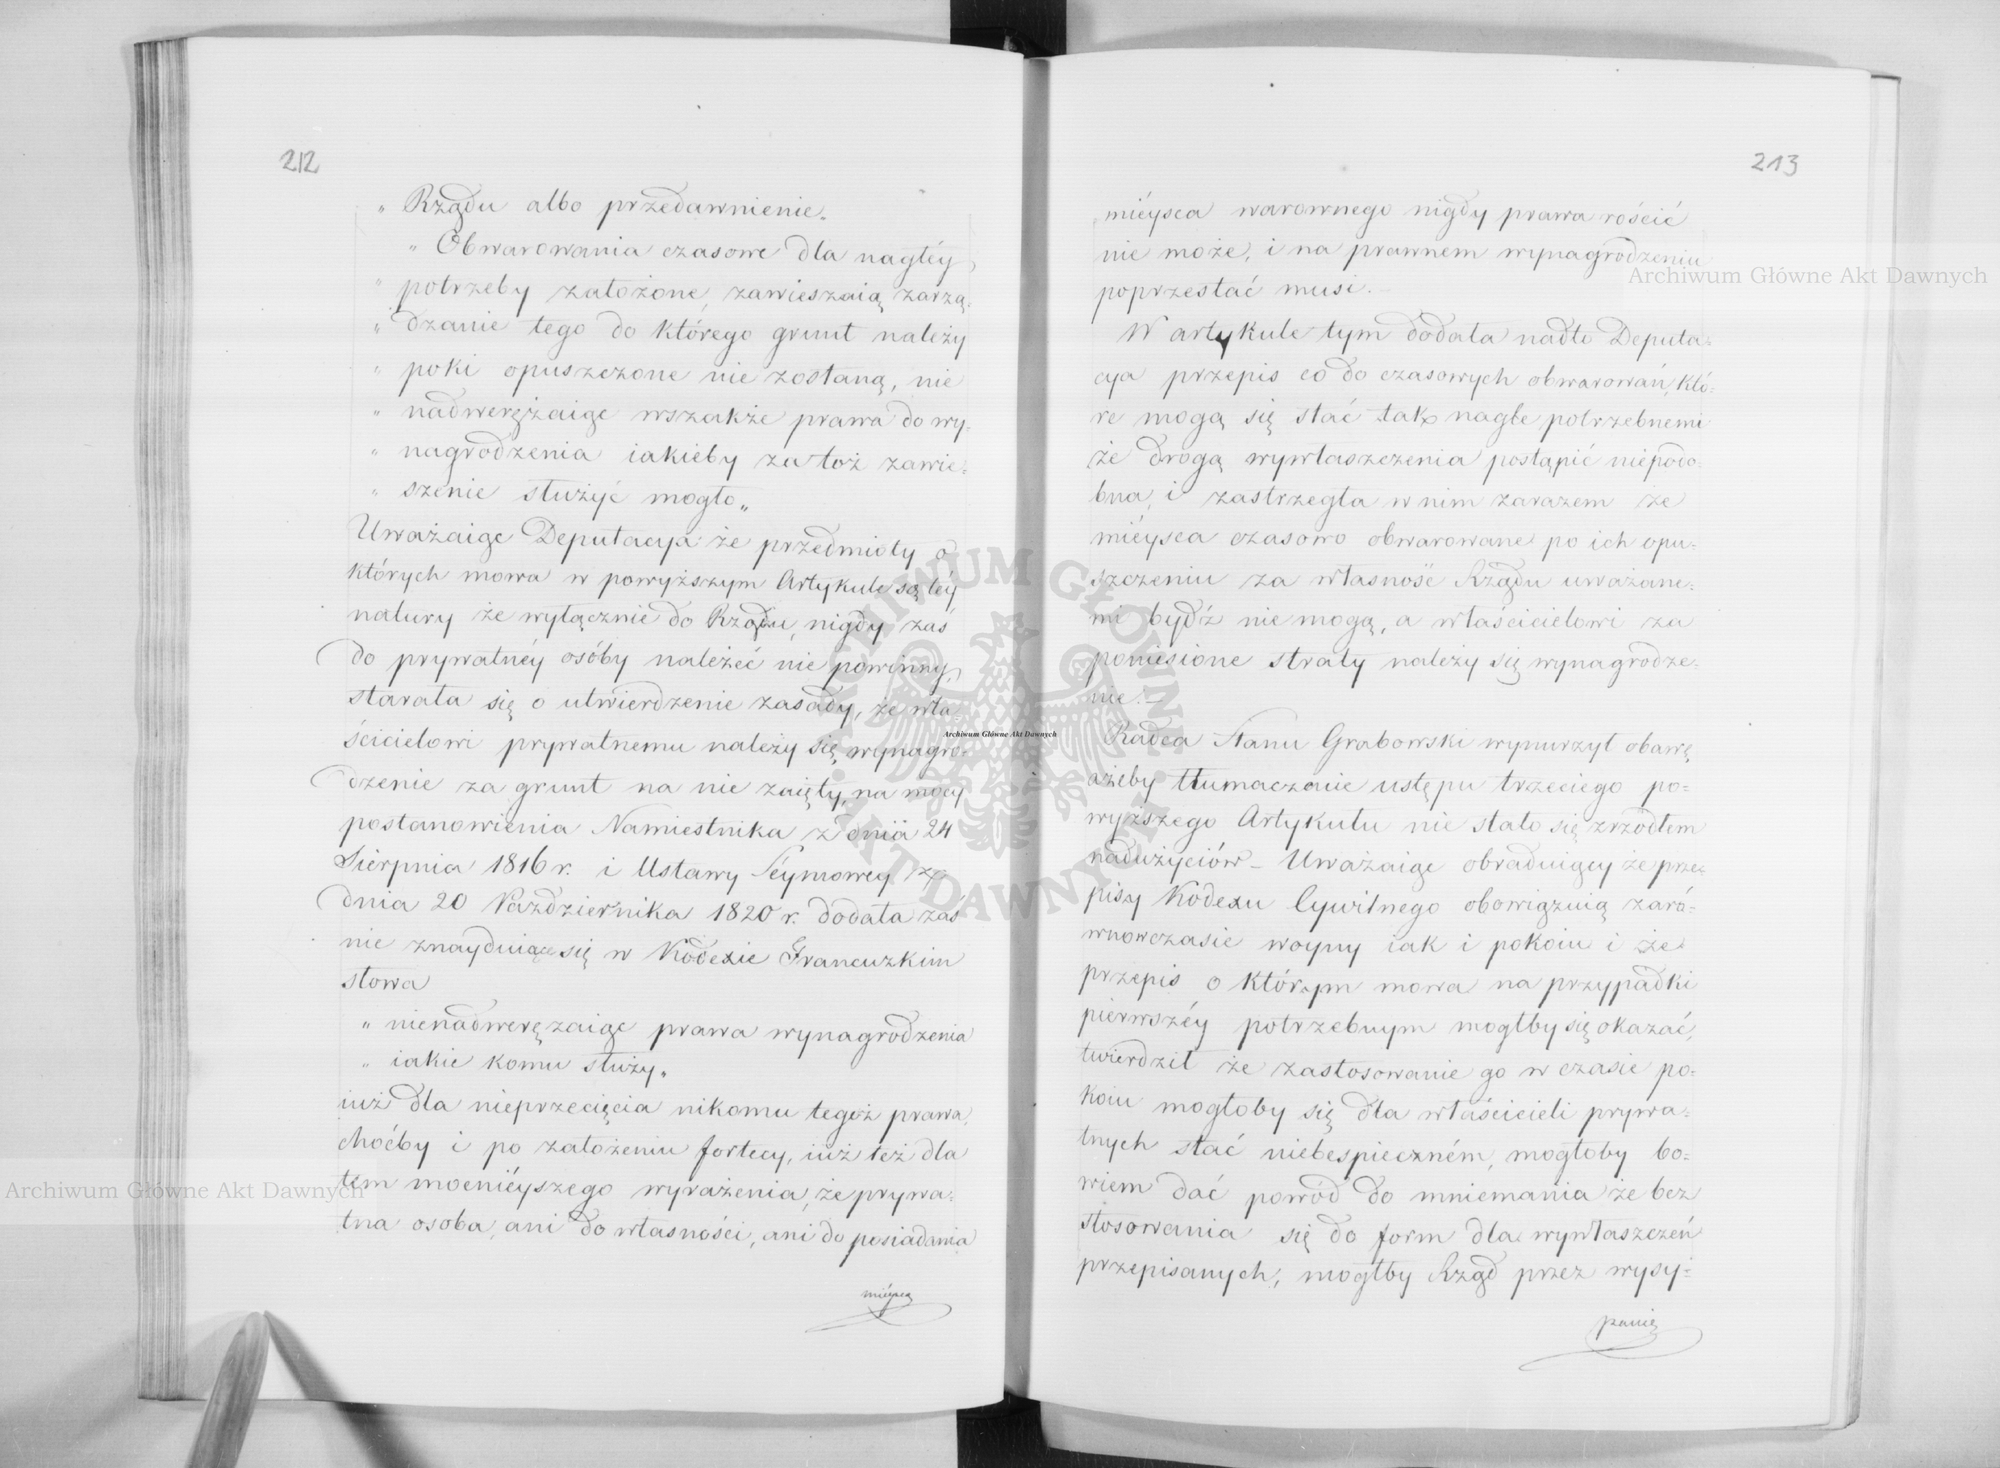 212
„ Rządu albo przedawnienie.
„ Obwarowania czasowe dla nagłéy
„ potrzeby założone, zawieszaią zarzą-
„ dzanie tego do którego grunt należy
„ poki opuszczone nie zostaną, nie
„ nadwerężaiąc wszakże prawa do wy-
„ nagrodzenia iakieby za toż zawie-
„ szenie służyć mogło„
Uważaiąc Deputacya że przedmioty o
których mowa w powyższym Artykule są téy
natury że wyłącznie do Rządu, nigdy zaś
do prywatnéy osóby należeć nie powinny,
starała się o utwierdzenie zasady, że wła-
ścicielowi prywatnemu należy się wynagro-
dzenie za grunt na nie zaięty, na mocy
postanowienia Namiestnika z dnia 24
Sierpnia 1816 r. i Ustawy Séymowey z
dnia 20 Października 1820 r. dodała zaś
nie znayduiące się w Kodexie Francuzkim
słowa
„ nienadwerężaiąc prawa wynagrodzenia
„ iakie komu służy„
iuż dla nieprzecięcia nikomu tegoż prawa,
choćby i po założeniu fortecy, iuż też dla
tem mocniéyszego wyrażenia, że prywa-
tna osoba, ani do własności, ani do posiadania
miéysca
213
miéysca warownego nigdy prawa rościć
nie może, i na prawnem wynagrodzeniu
poprzestać musi.-
W artykule tym dodała nadto Deputa-
cya przepis co do czasowych obwarowań, któ-
re mogą się stać tak nagle potrzebnemi
że drogą wywłaszczenia postąpić niepodo-
bna, i zastrzegła w nim zarazem że
miéysca czasowo obwarowane po ich opu-
szczeniu za własność Rządu uważane-
mi bydź nie mogą, a właścicielowi za
poniesione straty należy się wynagrodze-
nie.-
Radca Stanu Grabowski wynurzył obawę
ażeby tłumaczenie ustępu trzeciego po-
wyższego Artykułu nie stało się zrzodłem
nadużyciów - Uważaiąc obraduiący że prze-
pisy Kodexu Cywilnego obowiązuią zaró-
wno w czasie woyny iak i pokoiu i że
przepis o którym mowa na przypadki
pierwszéy potrzebnym mogłby się okazać,
twierdził że zastosowanie go w czasie po-
koiu mogłoby się dla właścicieli prywa-
tnych stać niebespieczném, mogłoby bo-
wiem dać powód do mniemania że bez
stosowania się do form dla wywłaszczeń
przepisanych, mogłby Rząd przez wysy-
Archiwum Główne Akt Dawnych
Archiwum Główne Akt Dawnych
Archiwum Główne Akt Dawnych
ARCHIWUM GŁÓWNE AKT DAWNYCH